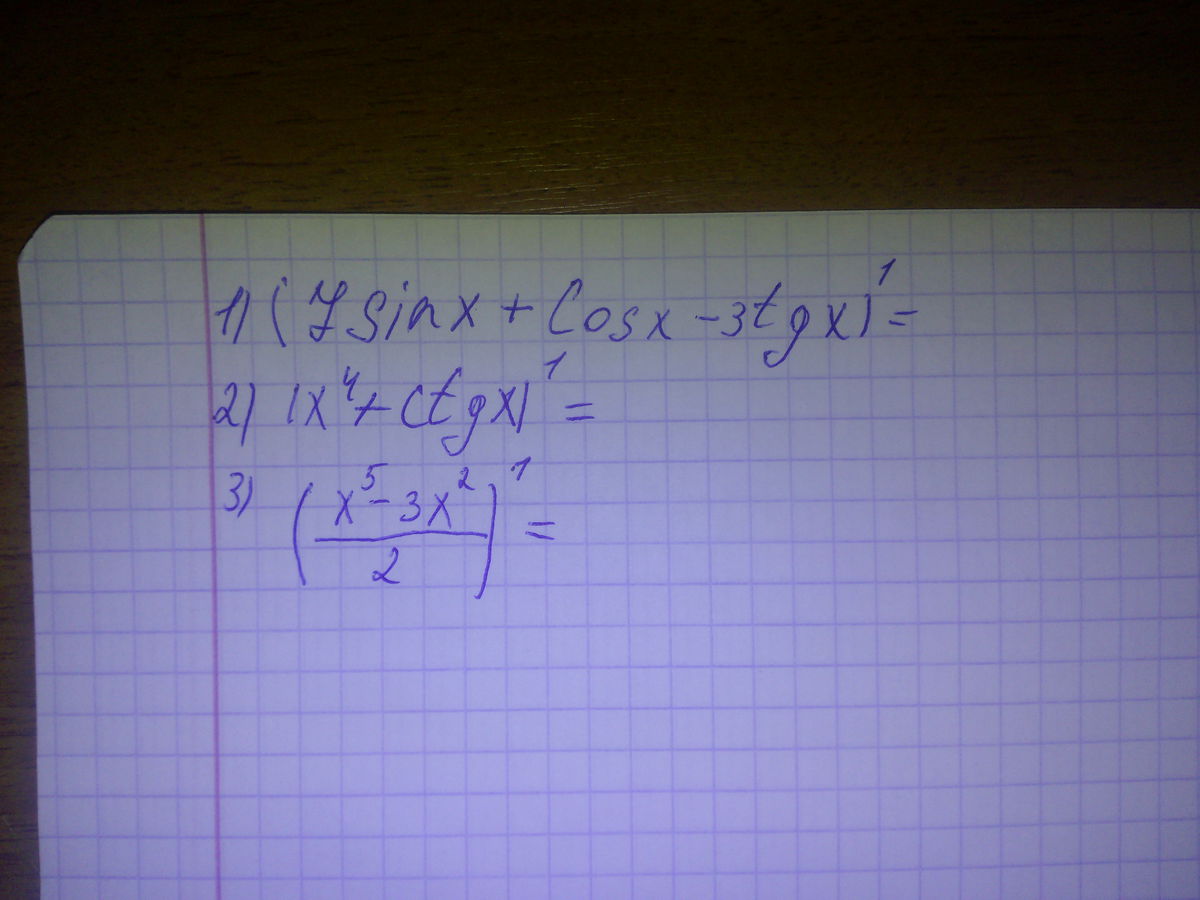 1) (7 sin x + Cos x - 3tg x)' =
2) (x⁴ + ctg x)' =
3) ((x⁵ - 3x²)/2)' =